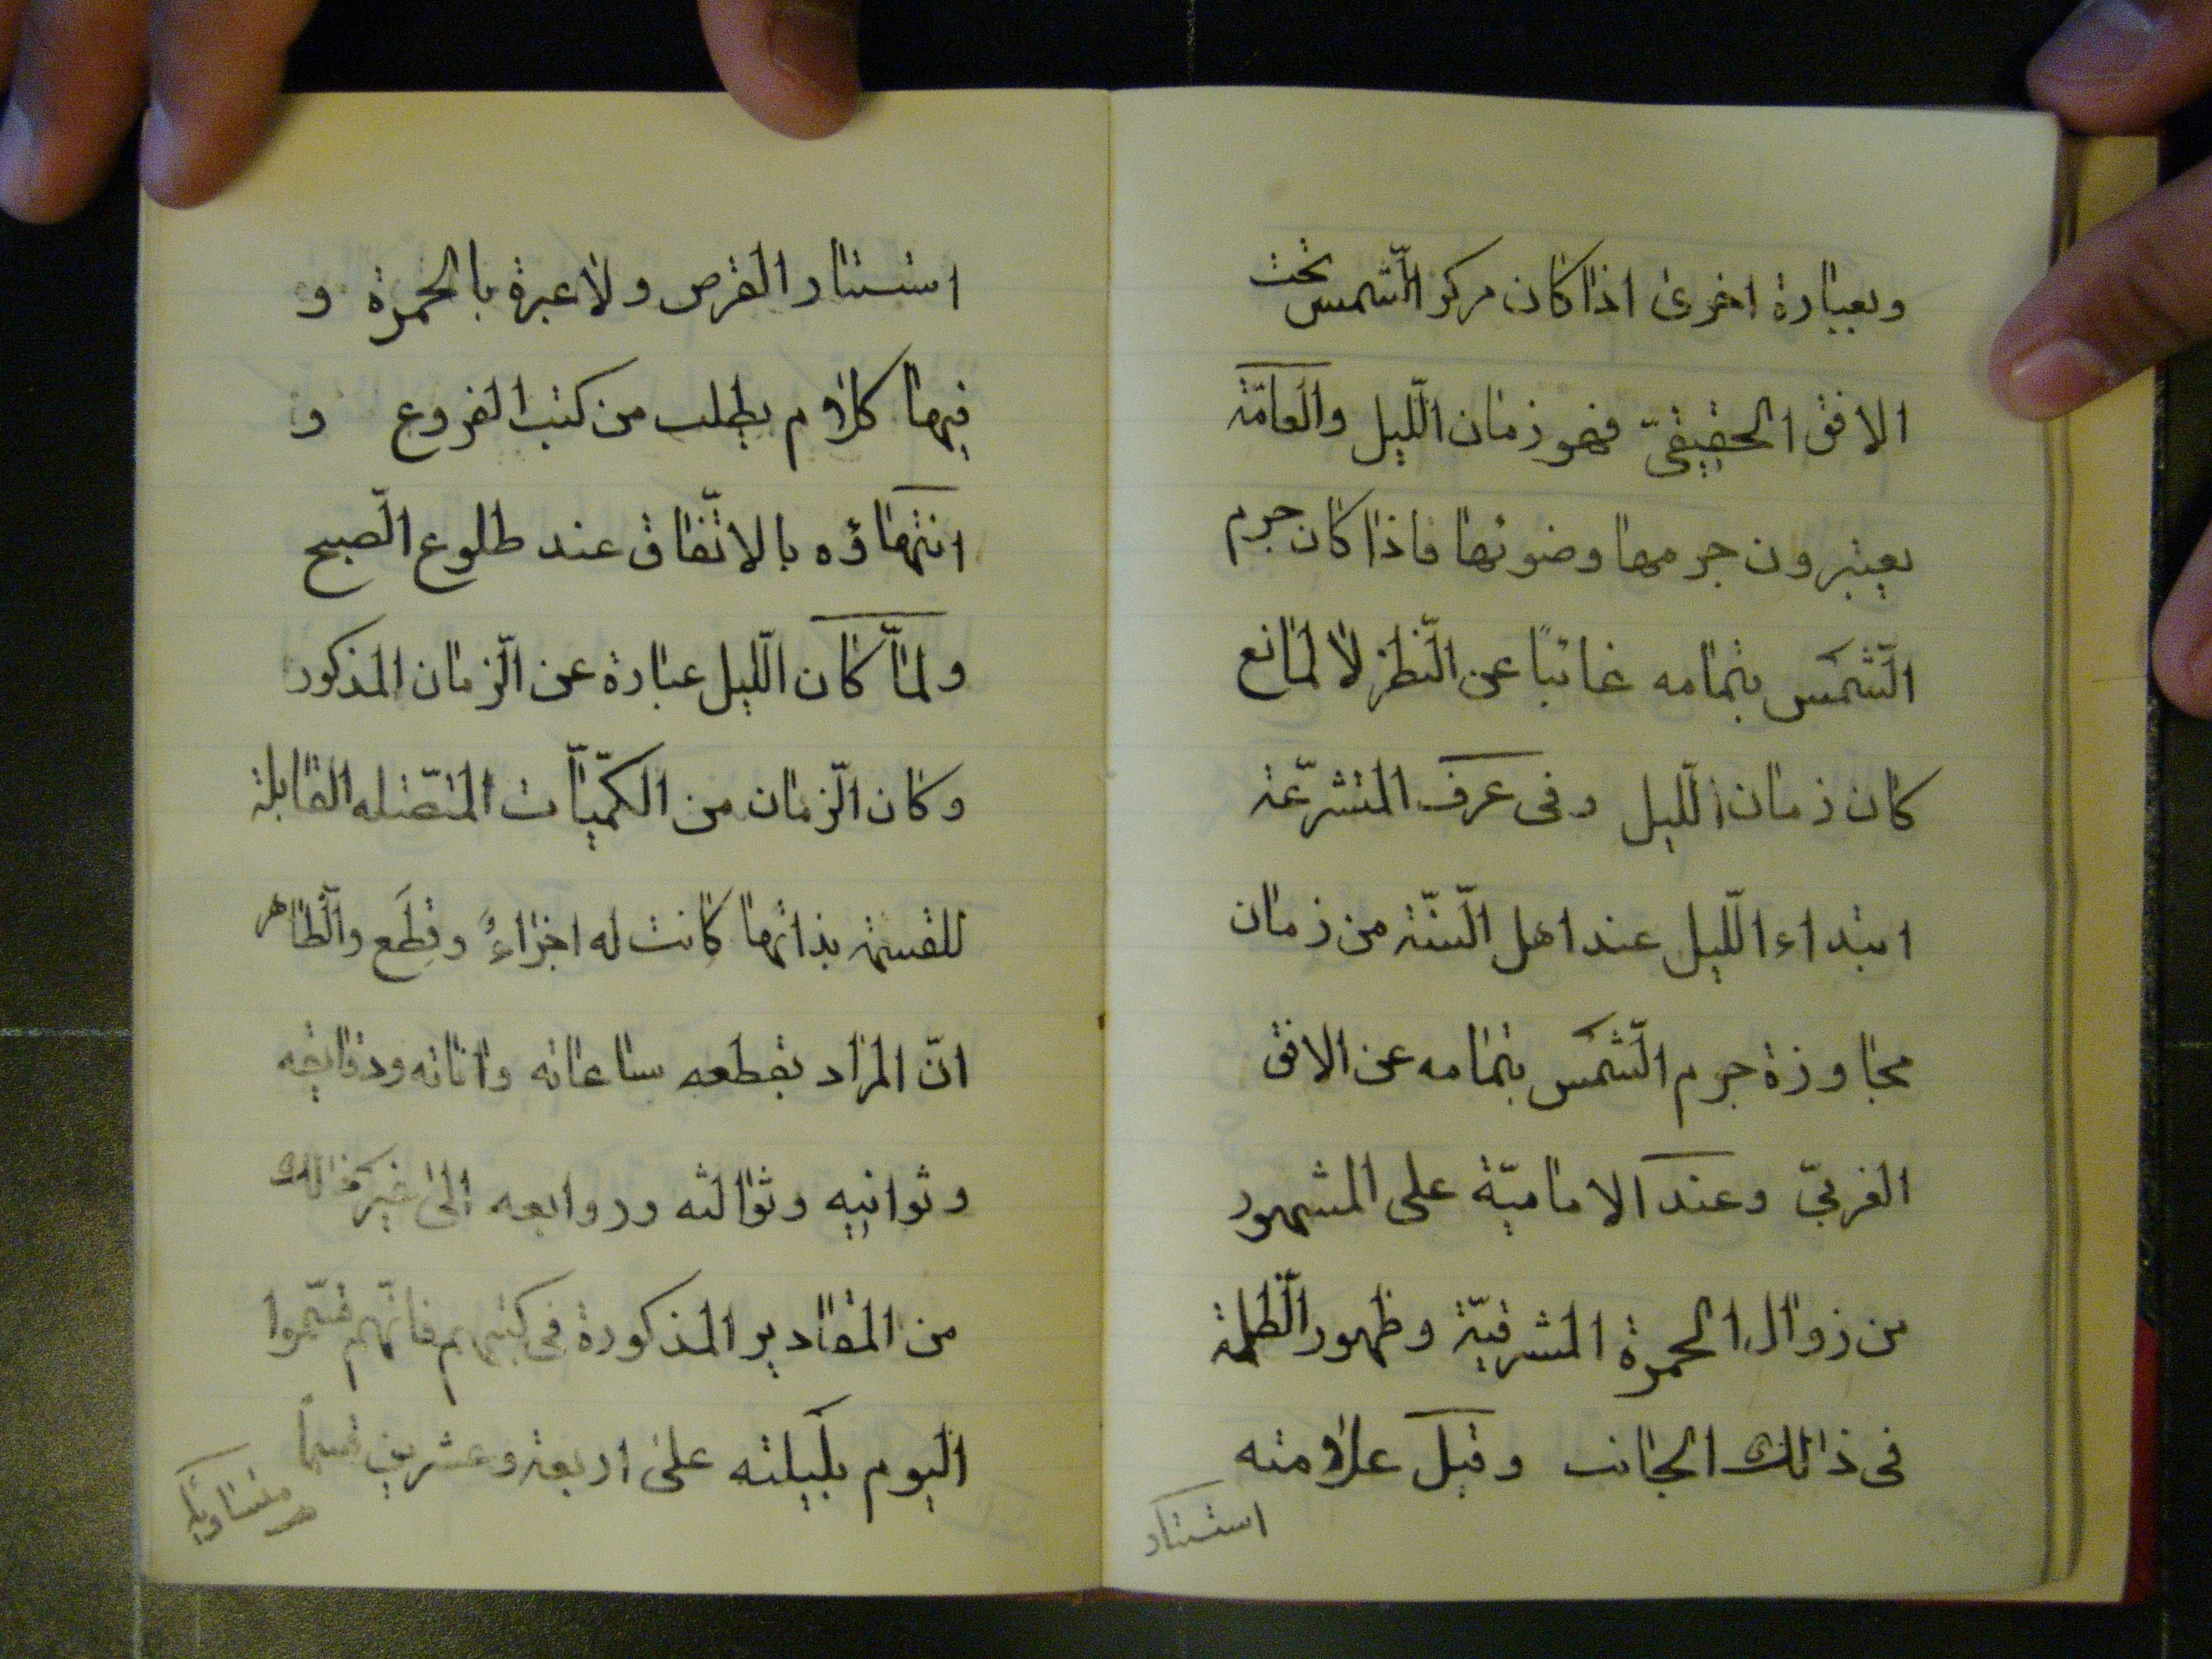 وبعبارة اخرى اذا كان مركز الشّمس تحت
الافق الحقيقىّ فهو زمان اللّيل والعامّة
يعتبرون جرمها وضوئها فاذا كان جرم
الشّمس بتمامه غائبًا عن النّظر لا لمانع
كان زمان اللّيل وفى عرف المتشرّعة
ابتداء اللّيل عند اهل السّنّة من زمان
مجاوزة جرم الشّمس بتمامه عن الافق
الغربىّ وعند الاماميّة على المشهور
من زوال الحمرة المشرقيّة وظهور الظّلمة
فى ذالك الجانب وقيل علامته
استتار
استتار القرص ولا عبرة بالحمرة و
فيها كلام يطلب من كتب الفروع و
انتهاؤه بالاتّفاق عند طلوع الصّبح
ولمّا كان اللّيل عبارة عن الزّمان المذكور
وكان الزّمان من الكمّيّات المتّصله القابلة
للقسمة بذاتها كانت له اجزاءٌ وقِطَع والظّاهر
انّ المراد بقطعه ساعاته واناته ودقايقه
وثوانيه وثوالثه وروابعه الى غير ذالك
من المقادير المذكورة فى كتبهم فانّهم قسّموا
اليوم بليلته على اربعة وعشرين قسمًا